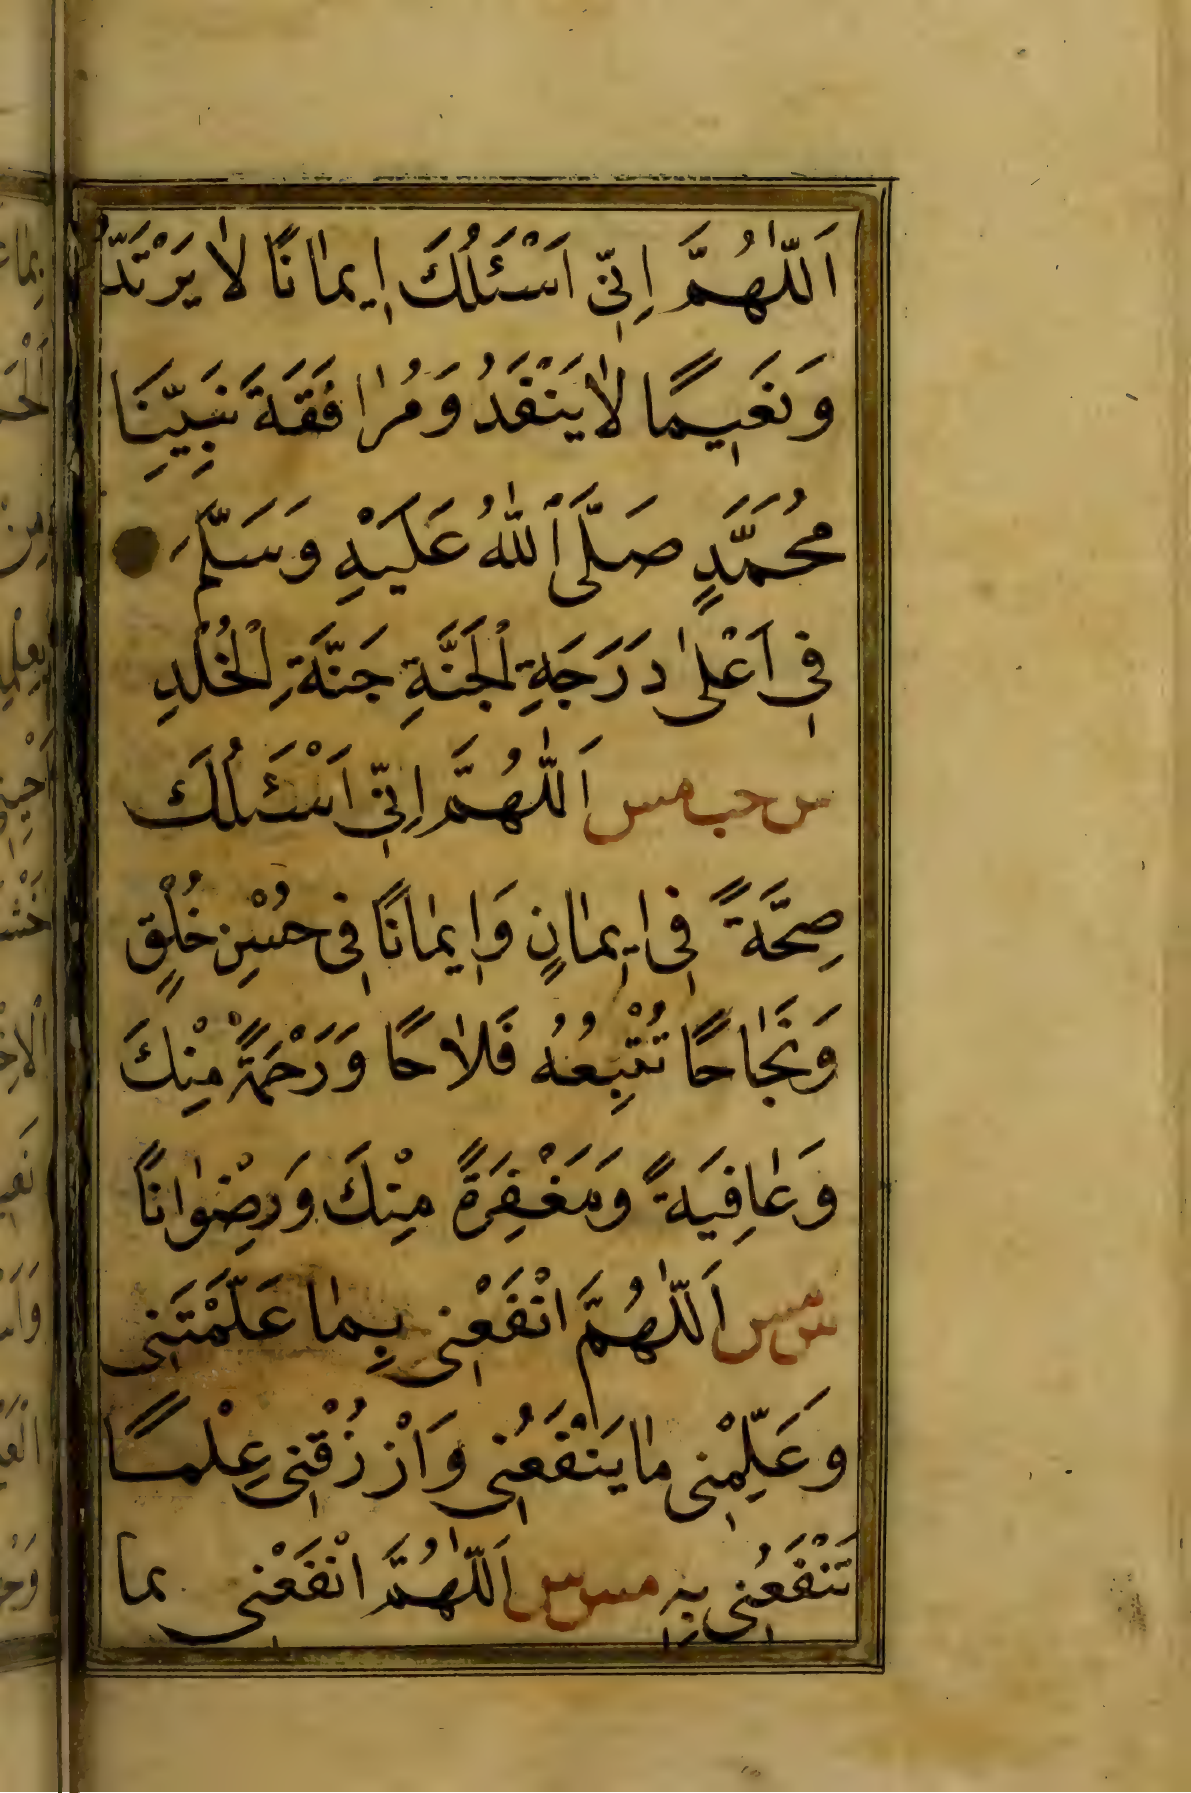 اَللّٰهُمَّ اِنّٖى اَسْئَلُكَ اٖيمٰانًا لاٰ يَرْتَدُّ
وَنَعٖيمًا لاٰ يَنْفَدُ وَمُرٰافَقَةَ نَبِيِّنَا
مُحَمَّدٍ صَلَّى اللّٰهُ عَلَيْهِ وَسَلَّمَ
فٖى اَعْلىٰ دَرَجَةِ الْجَنَّةِ جَنَّةِ الْخُلْدِ
س حب مس اَللّٰهُمَّ اِنّٖى اَسْئَلُكَ
صِحَّةً فٖى اٖيمٰانٍ وَاٖيمٰانًا فٖى حُسْنِ خُلُقٍ
وَنَجٰاحًا تُتْبِعُهُ فَلاٰحًا وَرَحْمَةً مِنْكَ
وَعٰافِيَةً وَمَغْفِرَةً مِنْكَ وَرِضْوٰانًا
س مس اَللّٰهُمَّ انْفَعْنٖى بِمٰا عَلَّمْتَنٖى
وَعَلِّمْنٖى مٰا يَنْفَعُنٖى وَارْزُقْنٖى عِلْمًا
تَنْفَعُنٖى بِهٖ س مس اَللّٰهُمَّ انْفَعْنٖى بما